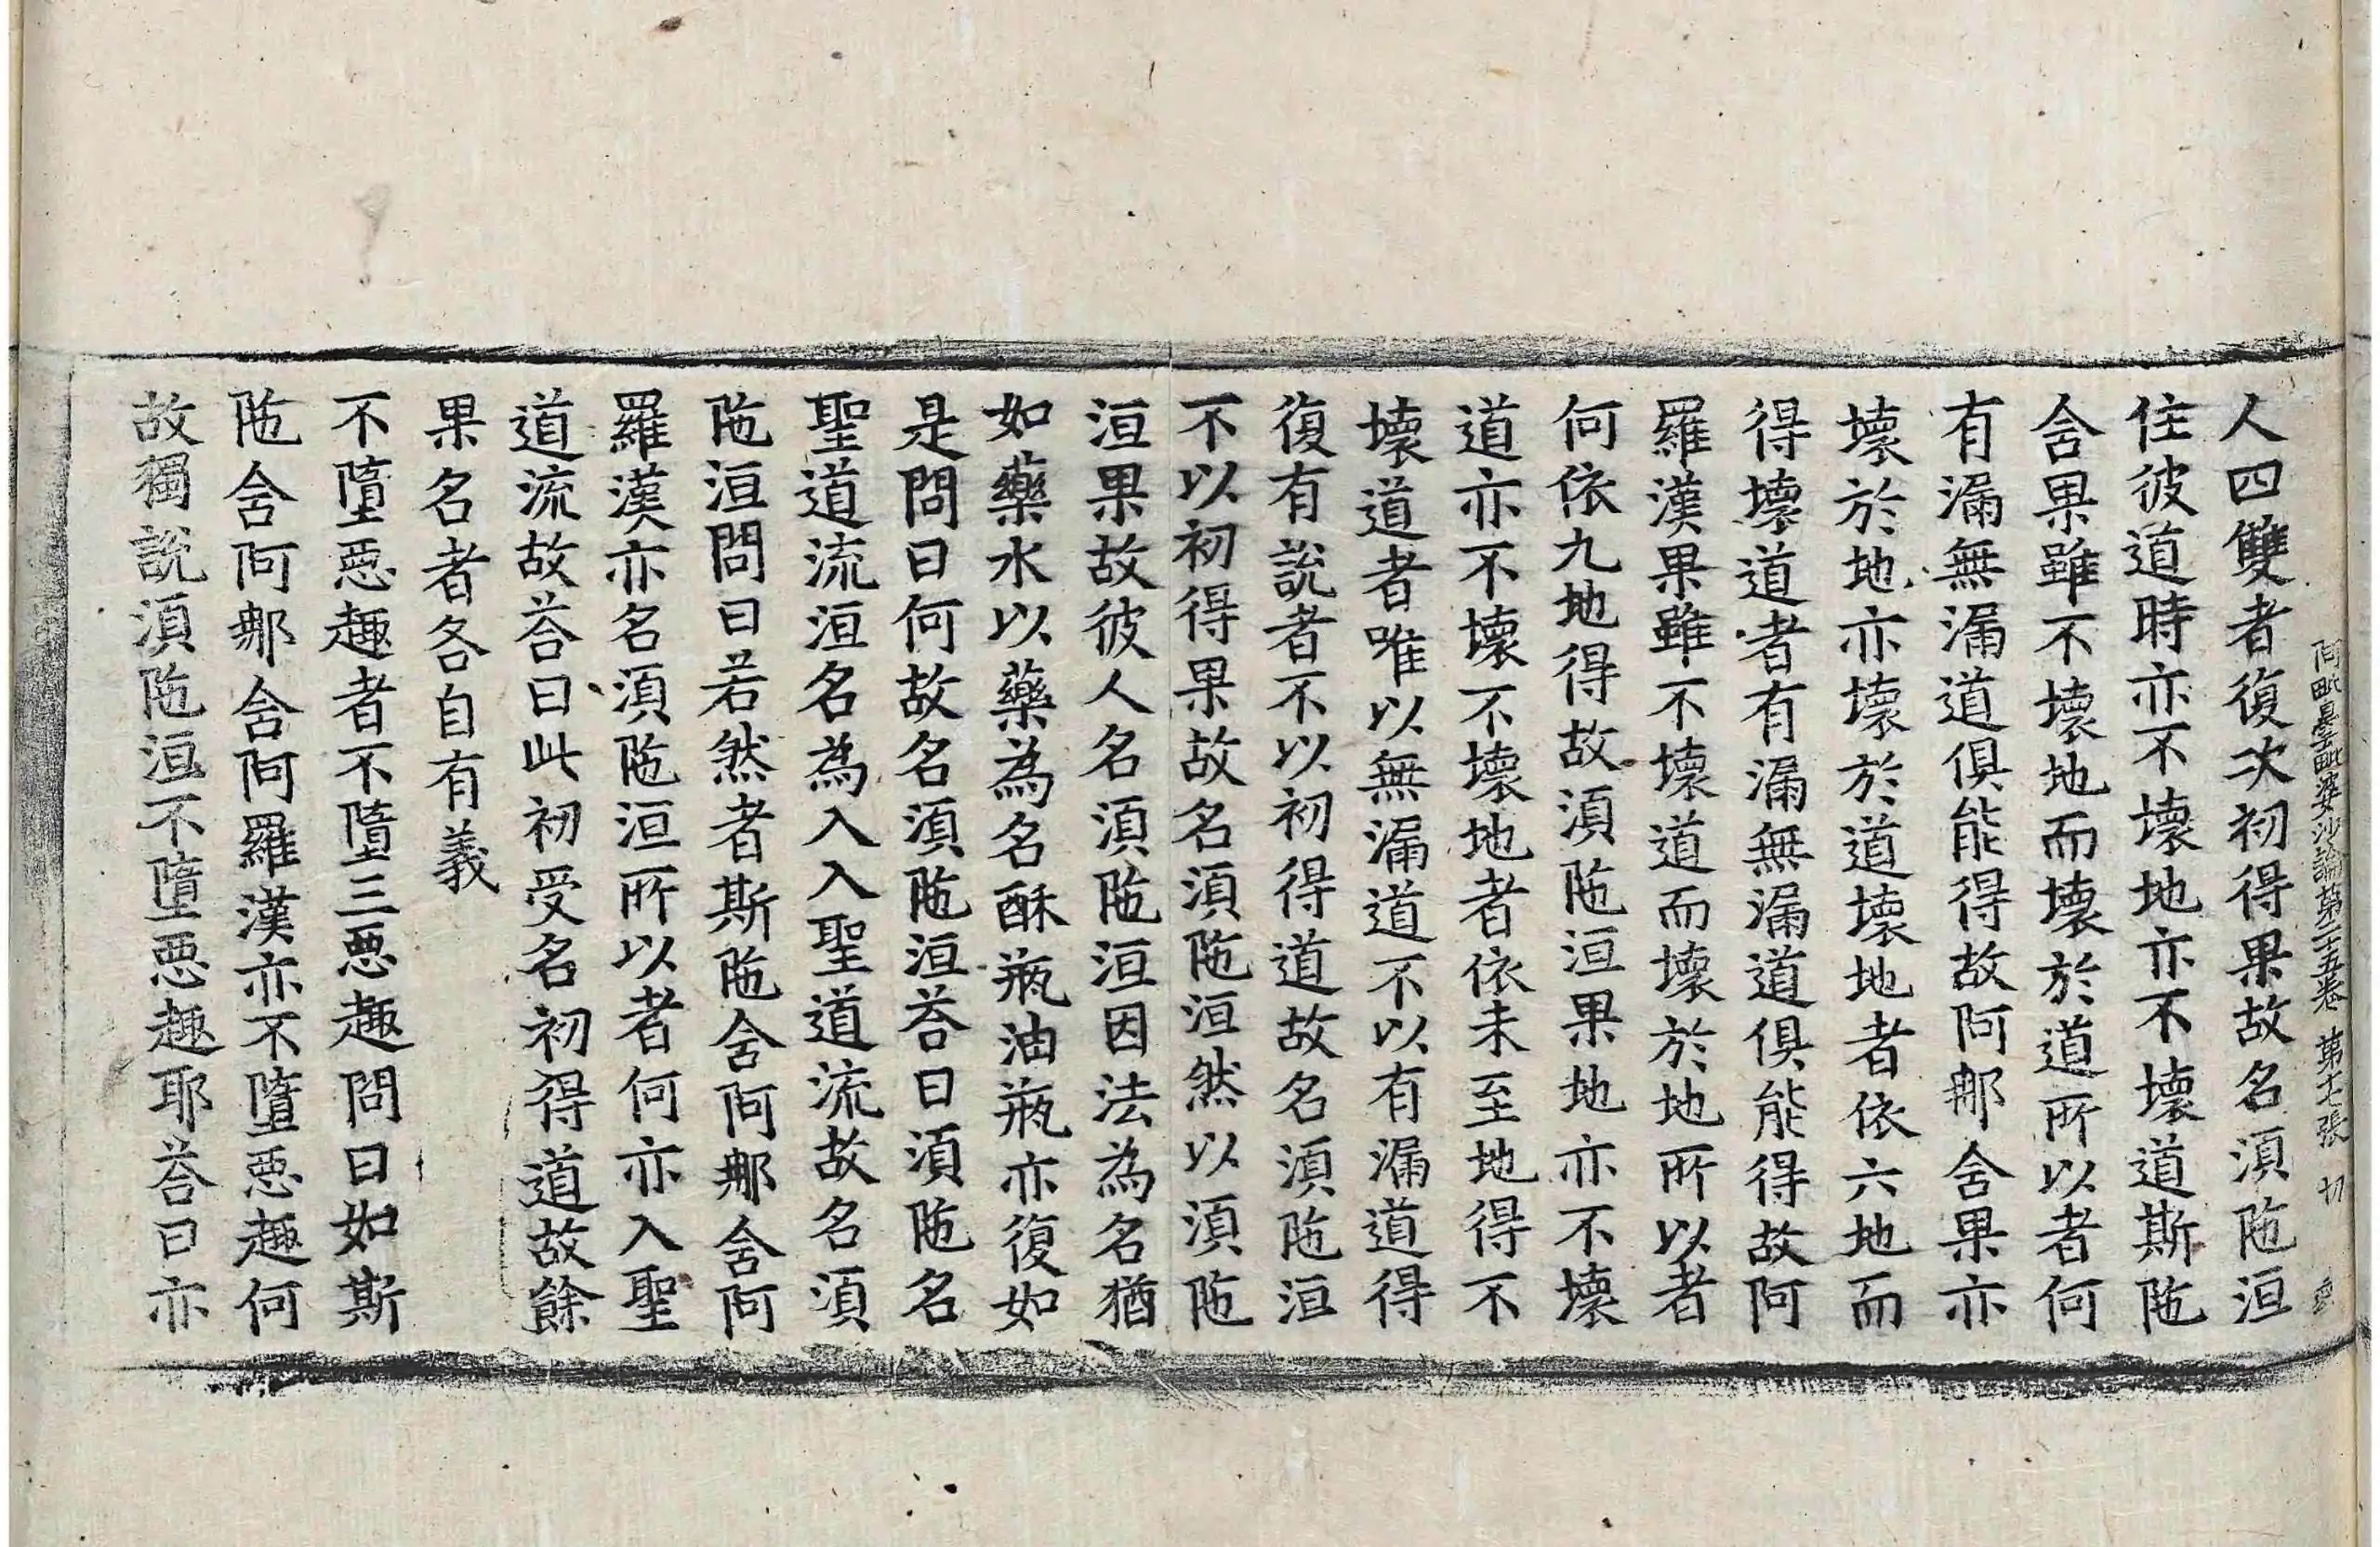 阿毗曇毗婆沙論第二十五卷 第十七張 切
人四雙者復次初得果故名湏陁洹
住彼道時亦不壞地亦不壞道斯陁
含果雖不壞地而壞於道所以者何
有漏無漏道俱能得故阿那含果亦
壞於地亦壞於道壞地者依六地而
得壞道者有漏無漏道俱能得故阿
羅漢果雖不壞道而壞於地所以者
何依九地得故湏陁洹果地亦不壞
道亦不壞不壞地者依未至地得不
壞道者唯以無漏道不以有漏道得
復有說者不以初得道故名湏陁洹
不以初得果故名湏陁洹然以湏陁
洹果故彼人名湏陁洹因法為名猶
如藥水以藥為名酥瓶油瓶亦復如
是問曰何故名湏陁洹荅曰湏陁名
聖道流洹名為入入聖道流故名湏
陁洹問曰若然者斯陁含阿那含阿
羅漢亦名湏陁洹所以者何亦入聖
道流故荅曰此初受名初得道故餘
果名者各自有義
不墮惡趣者不墮三惡趣問曰如斯
陁含阿那含阿羅漢亦不墮惡趣何
故獨說湏陁洹不墮惡趣耶荅曰亦